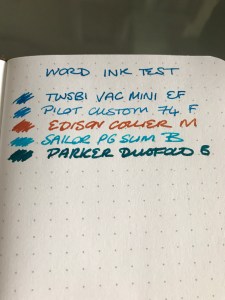 WORD INK TEST
TWSBI VAC MINI EF
PILOT CUSTOM 74 F
EDISON COLLIER M
SAILOR PG SLIM B
PARKER DUOFOLD B